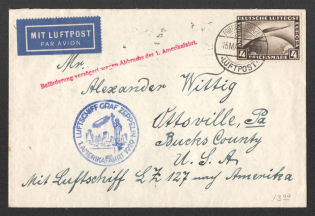 MIT LUFTPOST
PAR AVION
DEUTSCHE LUFTPOST
4 REICHSMARK 4
LUFTPOST
Mr.
Beförderung verzögert wegen Abbruchs der 1. Amerikafahrt.
Alexander Wittig
Ottsville, Pa
Bucks County
U.S.A
LUFTSCHIFF GRAF ZEPPELIN
1. AMERIKAFAHRT 1929
Mit Luftschiff LZ 127 nay Amerika